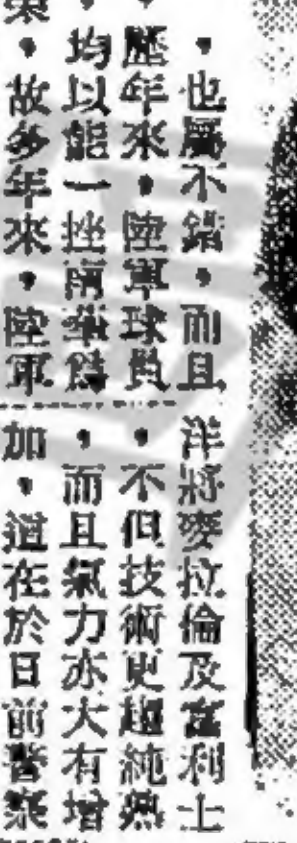 ，也屬不錯，而且
，歷年來，陸軍球員
，均以能一挫南華
，故多年來，陸軍
洋將麥拉倫及富利士
，不但技術更趨純熟
，而且氣力亦大有增
加，這在於日前警察